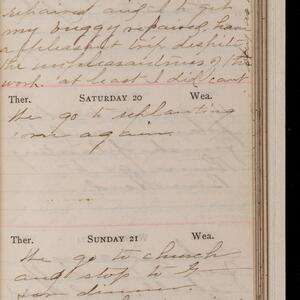 repaired and to get
my buggy repaired, have
had a pleasant trip despite
the unpleasantness of the
work. at least I did cant
Ther. SATURDAY 20 Wea.
We go to replanting
corn again.
Ther. SUNDAY 21 Wea.
We go to church
and stop to
for dinner.